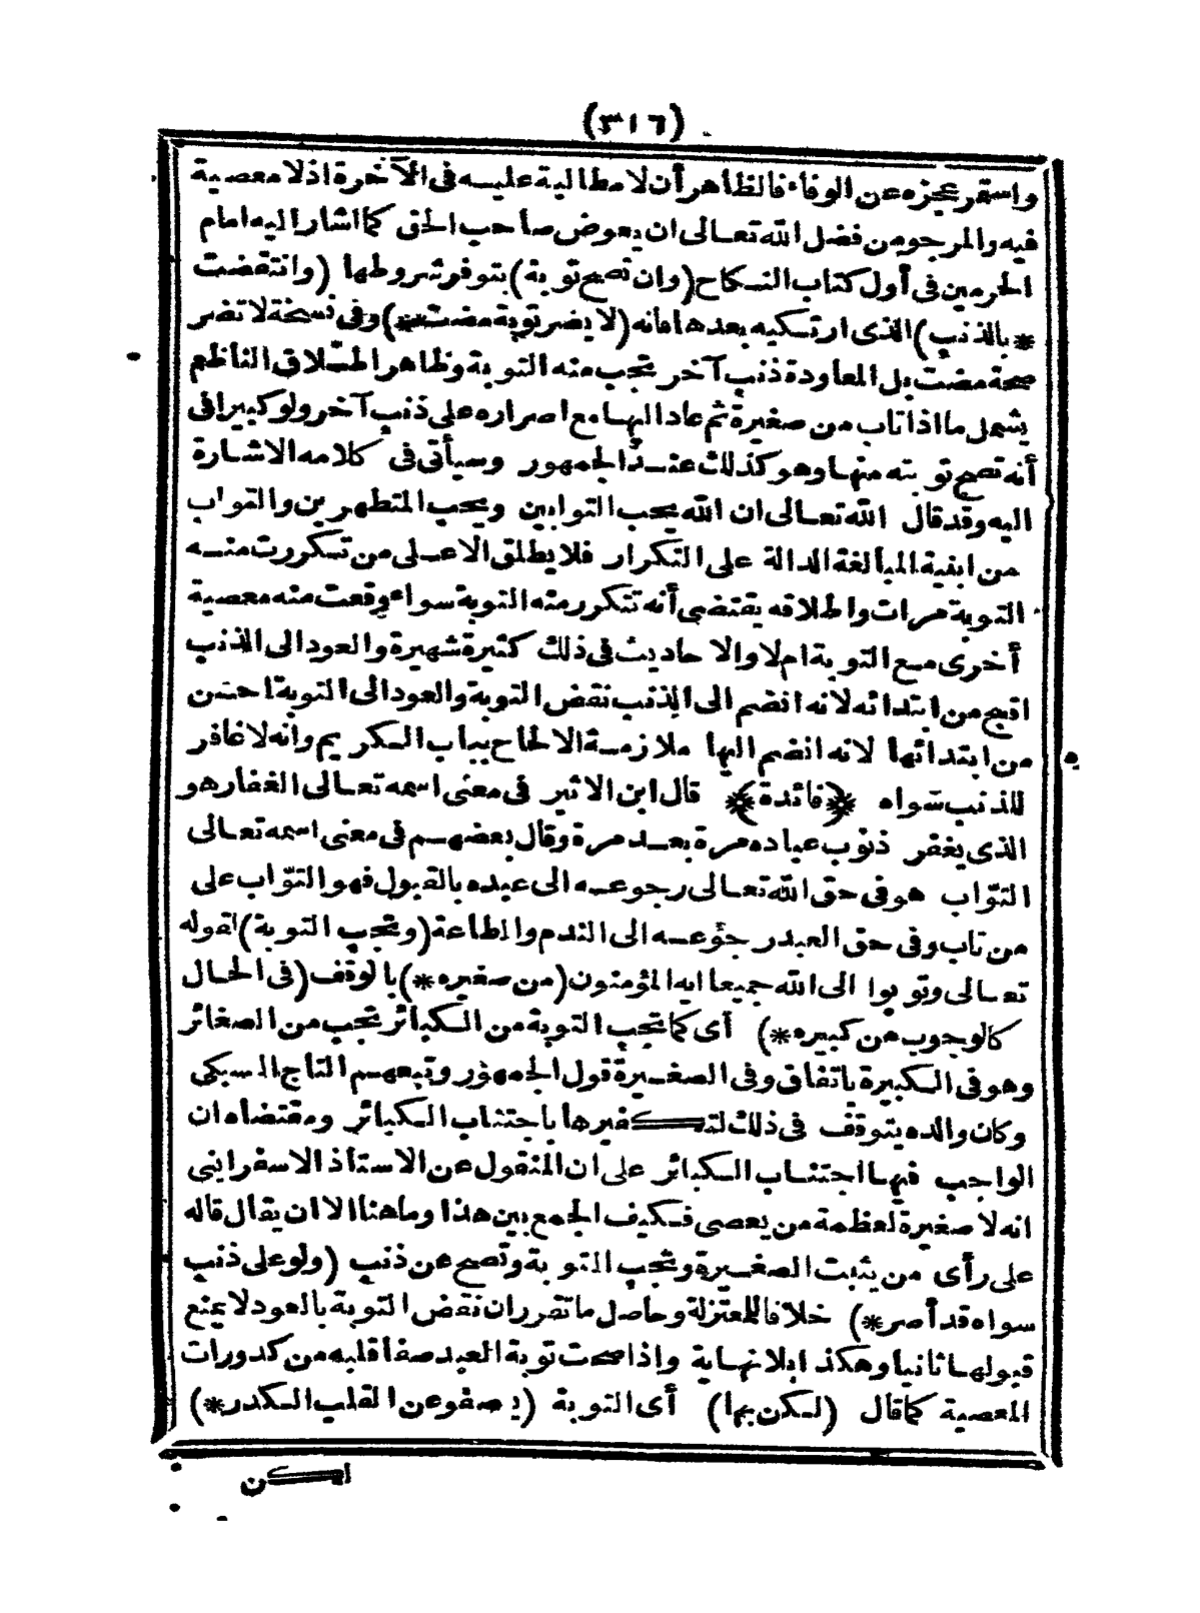 (٣١٦)
واستمر عجزه عن الوفاء فالظاهر أن لا مطالبة عليه فى الآخرة اذ لا معصية
فيه والمرجو من فضل الله تعالى ان يعوض صاحب الحق كما اشار اليه امام
الحرمين فى أول كتاب النكاح (وان تصح توبة) بتوفر شروطها (وانتقضت
* بالذنب) الذى ارتكبه بعدها فانه (لا يضر توبة مضت*) وفى نسخة لا تضر
صحة مضت بل المعاودة ذنب آخر تجب منه التوبة وظاهر اطلاق الناظم
يشمل ما اذا تاب من صغيرة ثم عاد اليها مع اصراره على ذنب آخر ولو كبيرا فى
أنه تصح توبته منها وهو كذلك عند الجمهور وسيأتى فى كلامه الاشارة
اليه وقد قال الله تعالى ان الله يحب التوابين ويحب المتطهرين والتواب
من ابنية المبالغة الدالة على التكرار فلا يطلق الا على من تكررت منه
التوبة مرات واطلاقه يقتضى أنه تتكرر منه التوبة سواء وقعت منه معصية
أخرى مع التوبة ام لا والا حاديث فى ذلك كثيرة شهيرة والعود الى الذنب
اقبح من ابتدائه لانه انضم الى الذنب نقض التوبة والعود الى التوبة احسن
من ابتدائها لانه انضم اليها ملازمة الالحاح بباب الكريم وانه لا غافر
للذنب سواه ﴿فائدة﴾ قال ابن الاثير فى معنى اسمه تعالى الغفار هو
الذى يغفر ذنوب عباده مرة بعد مرة وقال بعضهم فى معنى اسمه تعالى
التوّاب هو فى حق الله تعالى رجوعه الى عبده بالقبول فهو التوّاب على
من تاب وفى حق العبد رجوعه الى الندم والطاعة (وتجب التوبة) لقوله
تعالى وتوبوا الى الله جميعا ايه المؤمنون (من صغيره *) بالوقف (فى الحال
كالوجوب من كبيره *) أى كما تجب التوبة من الكبائر تجب من الصغائر
وهو فى الكبيرة باتفاق وفى الصغيرة قول الجمهور وتبعهم التاج السبكى
وكان والده يتوقف فى ذلك لتكفيرها باجتناب الكبائر ومقتضاه ان
الواجب فيها اجتناب الكبائر على ان المنقول عن الاستاذ الاسفراينى
انه لا صغيرة لعظمة من يعصى فكيف الجمع بين هذا وما هنا الا ان يقال قاله
على رأى من يثبت الصغيرة وتجب التوبة وتصح عن ذنب (ولو على ذنب
سواه قد أصر *) خلافا للمعتزلة وحاصل ما تقرر ان نقض التوبة بالعود لا يمنع
قبولها ثانيا وهكذا بلا نهاية واذا صحت توبة العبد صفا قلبه من كدورات
المعصية كما قال (لكن بها) أى التوبة (يصفو عن القلب الكدر *)
لكن